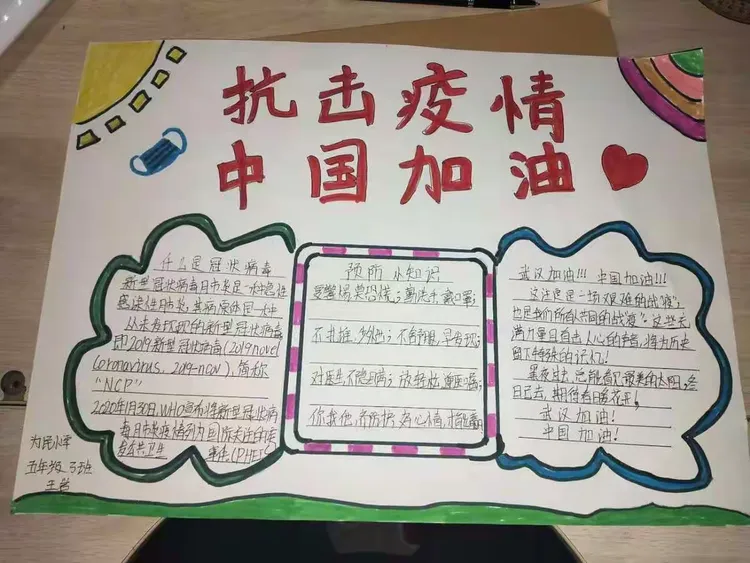 抗击疫情
中国加油
什么是冠状病毒
新型冠状病毒肺炎是一种急性
感染性肺炎,其病原体是一种
从未发现的新型冠状病毒
即2019新型冠状病毒(2019 novel
Coronavirus, 2019-nCoV),简称
"NCP"
2020年1月30日,WHO宣布将新型冠状病
毒肺炎疫情列为国际关注的突
发公共卫生事件(PHEIC
预防小知识
要警惕,莫恐慌;勤洗手,戴口罩;
不扎堆,
对医生不隐瞒;
你我他,
武汉加油!!! 中国加油!!!
这注定是一场艰难的战疫",
也是我们所有共同的战疫"。这些天
满力量且直击人心的声音,将为历史
留下特殊的记忆!
黑夜过去,总能看见最美的太阳,冬
日已去,期待春暖花开,
武汉加油!
中国加油!
为民小学
五年级 3班
王